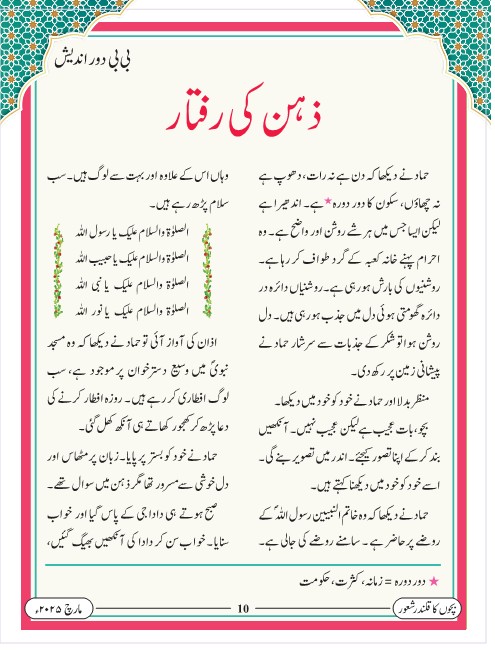 بی بی دور اندیش
ذہن کی رفتار
حماد نے دیکھا کہ دن ہے نہ رات، دھوپ ہے
نہ چھاؤں، سکون کا دور دورہ★ ہے۔ اندھیرا ہے
لیکن ایسا جس میں ہر شے روشن اور واضح ہے۔ وہ
احرام پہنے خانہ کعبہ کے گرد طواف کر رہا ہے۔
روشنیوں کی بارش ہو رہی ہے۔ روشنیاں دائرہ در
دائرہ گھومتی ہوئی دل میں جذب ہو رہی ہیں۔ دل
روشن ہوا تو شکر کے جذبات سے سرشار حماد نے
پیشانی زمین پر رکھ دی۔
منظر بدلا اور حماد نے خود کو خود میں دیکھا۔
بچو، بات عجیب ہے لیکن عجیب نہیں۔ آنکھیں
بند کر کے اپنا تصور کیجئے۔ اندر میں تصویر بنے گی۔
اسے خود کو خود میں دیکھنا کہتے ہیں۔
حماد نے دیکھا کہ وہ خاتم النبیین رسول اللہؐ کے
روضے پر حاضر ہے۔ سامنے روضے کی جالی ہے۔
وہاں اس کے علاوہ اور بہت سے لوگ ہیں۔ سب
سلام پڑھ رہے ہیں۔
الصلوٰۃ والسلام علیک یا رسول اللہ
الصلوٰۃ والسلام علیک یا حبیب اللہ
الصلوٰۃ والسلام علیک یا نبی اللہ
الصلوٰۃ والسلام علیک یا نور اللہ
اذان کی آواز آئی تو حماد نے دیکھا کہ وہ مسجد
نبویؐ میں وسیع دسترخوان پر موجود ہے، سب
لوگ افطاری کر رہے ہیں۔ روزہ افطار کرنے کی
دعا پڑھ کر کھجور کھاتے ہی آنکھ کھل گئی۔
حماد نے خود کو بستر پر پایا۔ زبان پر مٹھاس اور
دل خوشی سے مسرور تھا مگر ذہن میں سوال تھے۔
صبح ہوتے ہی دادا جی کے پاس گیا اور خواب
سنایا۔ خواب سن کر دادا کی آنکھیں بھیگ گئیں،
★ دور دورہ = زمانہ، کثرت، حکومت
بچوں کا قلندر شعور
10
مارچ ۲۰۲۵ء